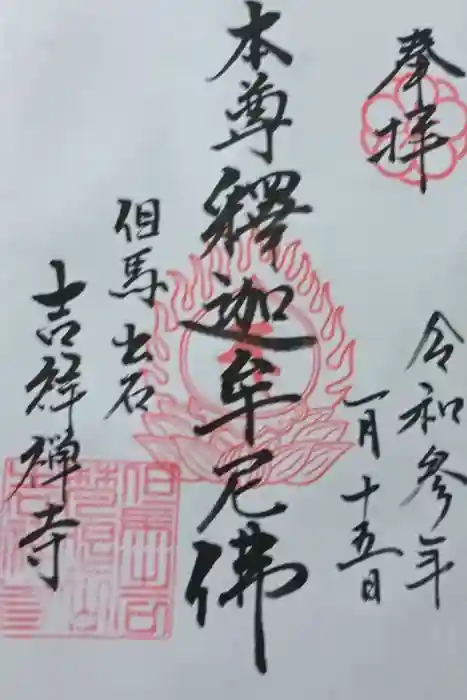 奉拝
令和参年
一月十五日
本尊釋迦牟尼佛
但馬出石
吉祥禅寺